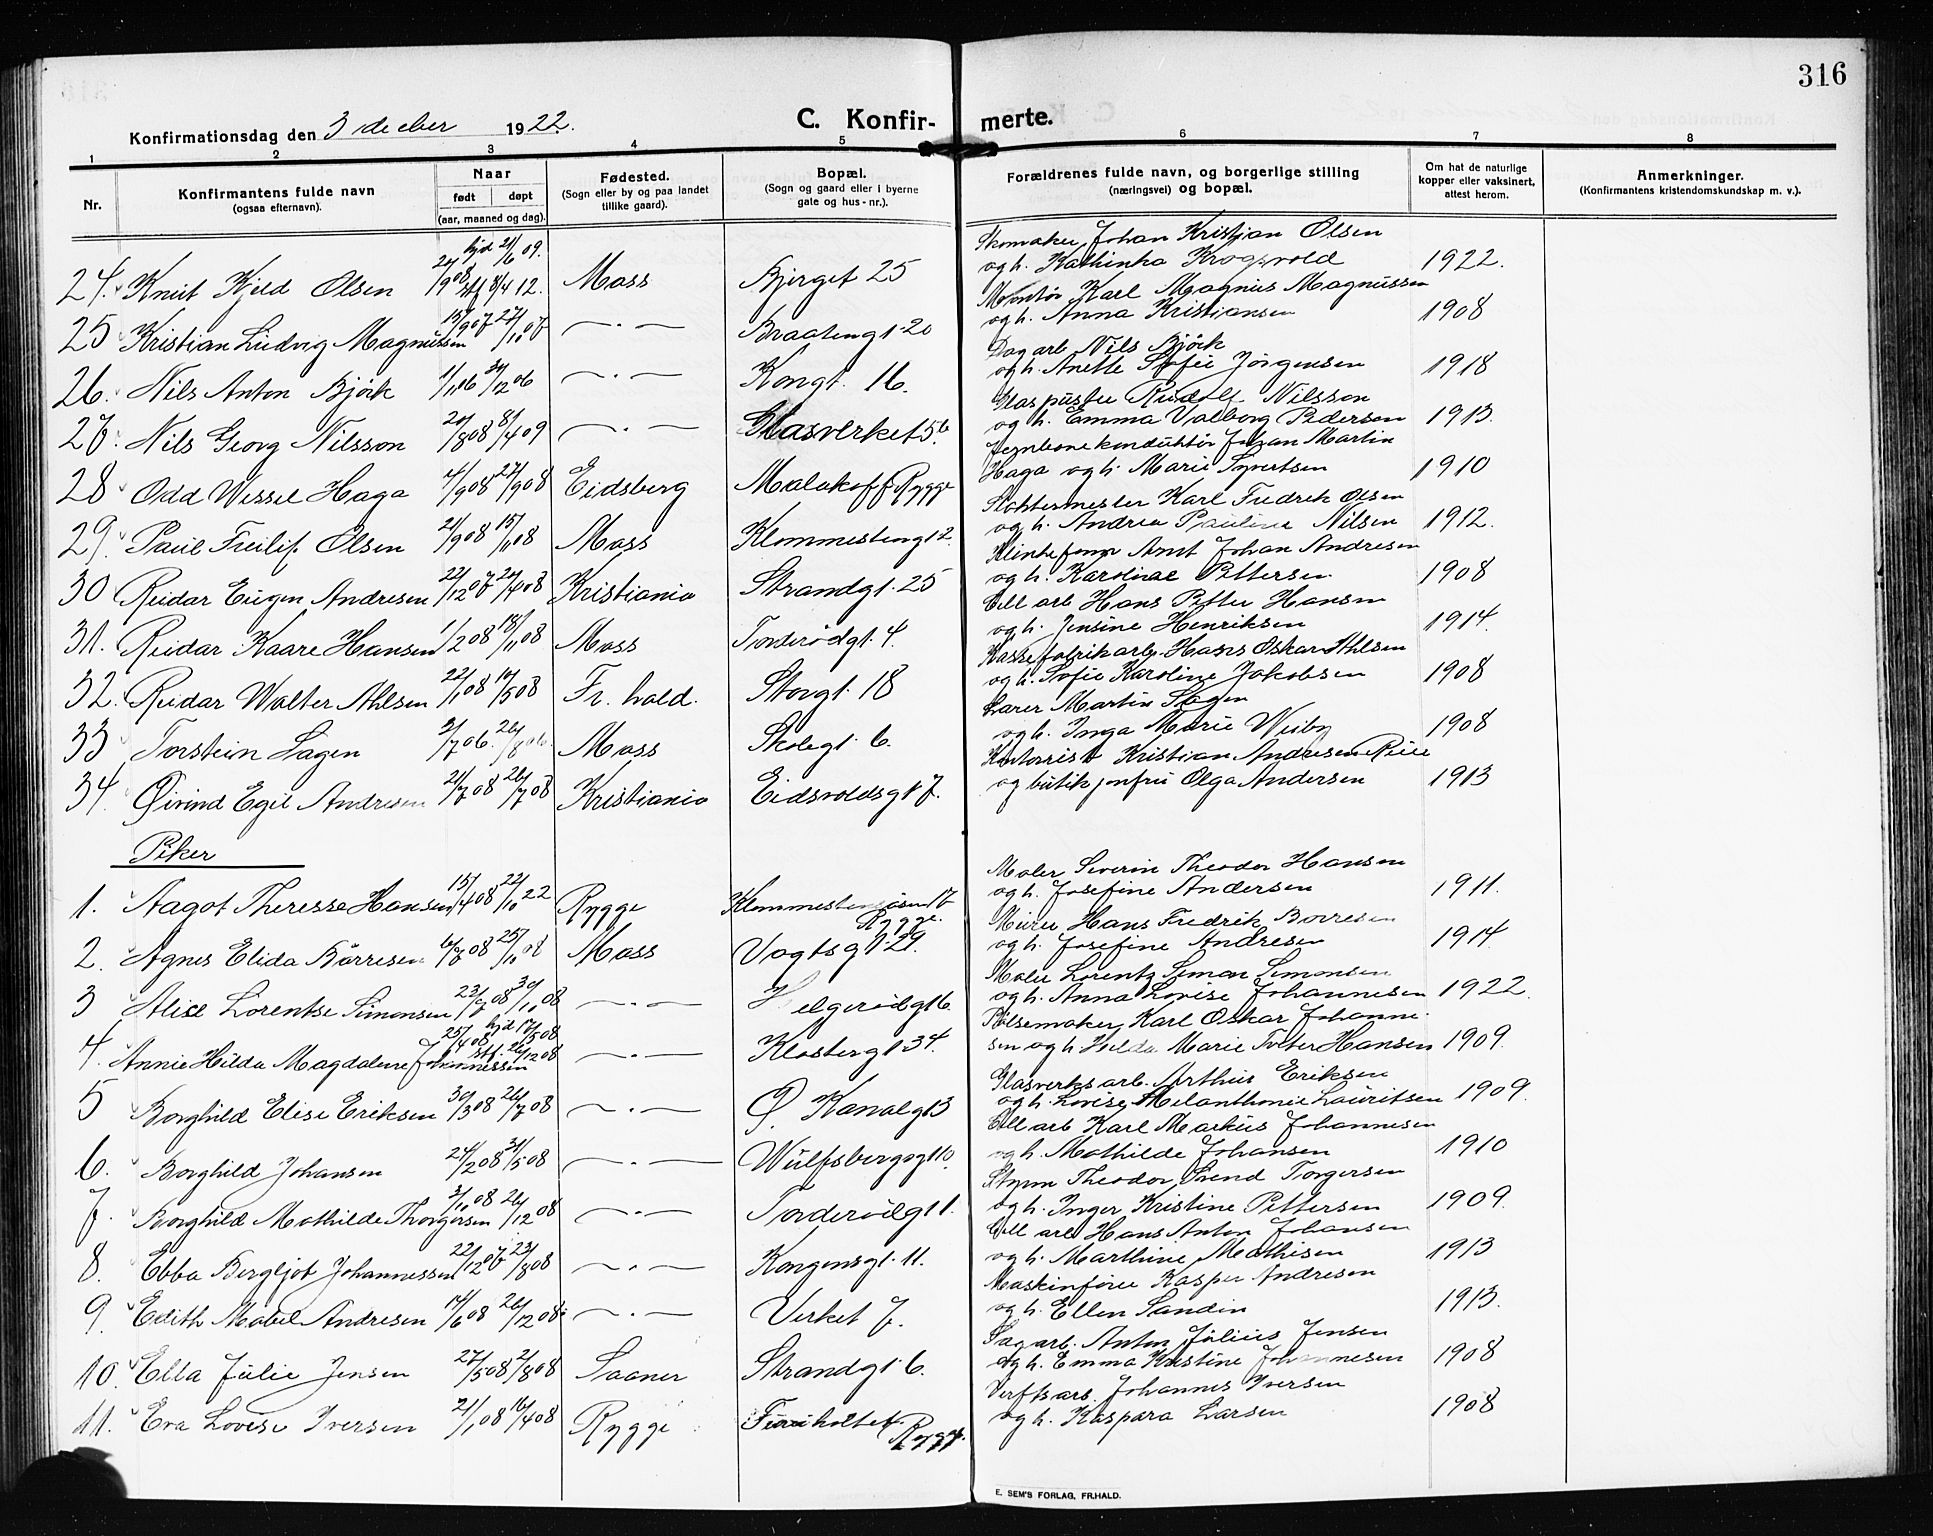 316
Konfirmationsdag den 3 december 1922.
C. Konfir-merte.
1 2 3 4 5 6 7 8
Nr.
Konfirmantens fulde navn
(ogsaa efternavn).
Naar
født døpt
(aar, maaned og dag).
Fødested.
(Sogn eller by og paa landet
tillike gaard).
Bopæl.
(Sogn og gaard eller i byerne
gate og hus-nr.).
Forældrenes fulde navn, og borgerlige stilling
(næringsvei) og bopæl.
Om hat de naturlige
kopper eller vaksinert,
attest herom.
Anmerkninger.
(Konfirmantens kristendomskundskap m. v.).
hjd 21/6 09. Skomaker Johan Kristian Olsen
24. Knut Kjeld Olsen 29/9 08 stf 8/4 12. Moss Bjerget 25 og h. Kathinka Krogsvold 1922.
Montør Karl Magnus Magnussen
25 Kristian Ludvig Magnussen 15/9 07 27/10 07 —·— Braatengt. 20 og h. Anna Kristiansen 1908
Dagarb Nils Bjørk
26. Nils Anton Bjørk 1/1 06 31/12 06 —·— Kongt. 16. og h. Anette Sofie Jørgensen 1918
Glaspuster Rudolf Nilsson
27. Nils Georg Nilsson 20/8 08 8/4 09 —·— Glasverket 56. og h. Emma Valborg Pedersen 1913.
Jernbanekonduktør Johan Martin
28 Odd Wessel Haga 4/9 08 27/9 08 Eidsberg Malakoff Rygge Haga og h. Marie Syvertsen 1910
Slaktermester Karl Fredrik Olsen
29. Paul Freilif Olsen 21/9 08 15/11 08 Moss Klommestengt 2. og h. Andrea Pauline Nilsen 1912.
Arnt Johan Andresen
30 Reidar Eugen Andresen 22/12 07 20/4 08 Kristiania Strandgt. 25 og h. Karoline Pettersen 1908
Cell arb Hans Petter Hansen
31. Reidar Kaare Hansen 1/2 08 18/11 08 Moss Torderødgt. 4. og h. Jensine Henriksen 1914.
Kassefabrikarb. Hans Oskar Ahlsen
32. Reidar Walter Ahlsen 22/1 08 10/5 08 Fr. hald. Storgt. 18 og h. Sofie Karoline Jakobsen 1908
Lærer Martin Lagen
33 Torstein Lagen 2/7 06. 26/8 06. Moss Skolegt. 6. og h. Inga Marie Weiby 1908
Kontorist Kristian Andresen Reier
34. Øivind Egil Andresen 21/7 08 26/7 08 Kristiania Eidsvoldsgt 7. og butikjomfru Olga Andersen 1913
Piker
Maler Severin Theodor Hansen
1. Aagot Theresse Hansen 15/4 08 22/10 22 Rygge Klommestensøsen 17 Rygge. og h. Josefine Andersen 1911.
Murer Hans Fredrik Borresen
2. Agnes Elida Børresen 6/7 08 25/11 08 Moss Vogtsgt. 29. og h. Josefine Andresen 1914.
Maler Lorentz Simon Simonsen
3 Alise Lorentse Simonsen 23/9 08 30/11 08 —·— Helgerødgt 6. og h. Anna Lovise Johannesen 1922.
Pølsemaker Karl Oskar Johanne-
4. Annie Hilda Magdalene Johannessen 25/4 08 hjd 17/5 08 stf. 26/12 08 —·— Klostergt 34. sen og h. Hilda Marie Tveter Hansen 1909.
Glasverksarb. Arthur Eriksen
5 Borghild Elise Eriksen 30/3 08 26/7 08 —·— Ø. Kanalgt 3 og h. Lovise Melanthonie Lauritsen 1909.
Cell arb Karl Markus Johannesen
6. Borghild Johansen 24/2 08 31/5 08 —·— Wulfsbergsgt 10. og h. Mathilde Johansen 1910
Styrm Theodor Svend Torgersen
7. Borghild Mathilde Thorgersen 3/10 08 26/12 08 —·— Torderødgt 1. og h. Inger Kristine Pettersen 1909.
Cell arb Hans Anton Johansen
8. Ebba Bergljot Johannessen 22/12 07 23/8 08 —·— Kongensgt. 11. og h. Marthine Mathisen 1913
Maskinfører Kasper Andresen
9. Edith Mabel Andresen 14/6 08 26/12 08. —·— Verket 7. og h. Ellen Sandin 1913.
Sagarb. Anton Julius Jensen
10. Ella Julie Jensen 27/5 08 2/8 08 Saaner Strandgt. 6. og h. Emma Kristine Johannesen 1908
Verftsarb. Johannes Iversen
11. Eva Lovise Iversen 21/1 08 16/4 08 Rygge Fureholtet Rygge. og h. Kaspara Larsen 1908
E. SEM'S FORLAG, FR.HALD.